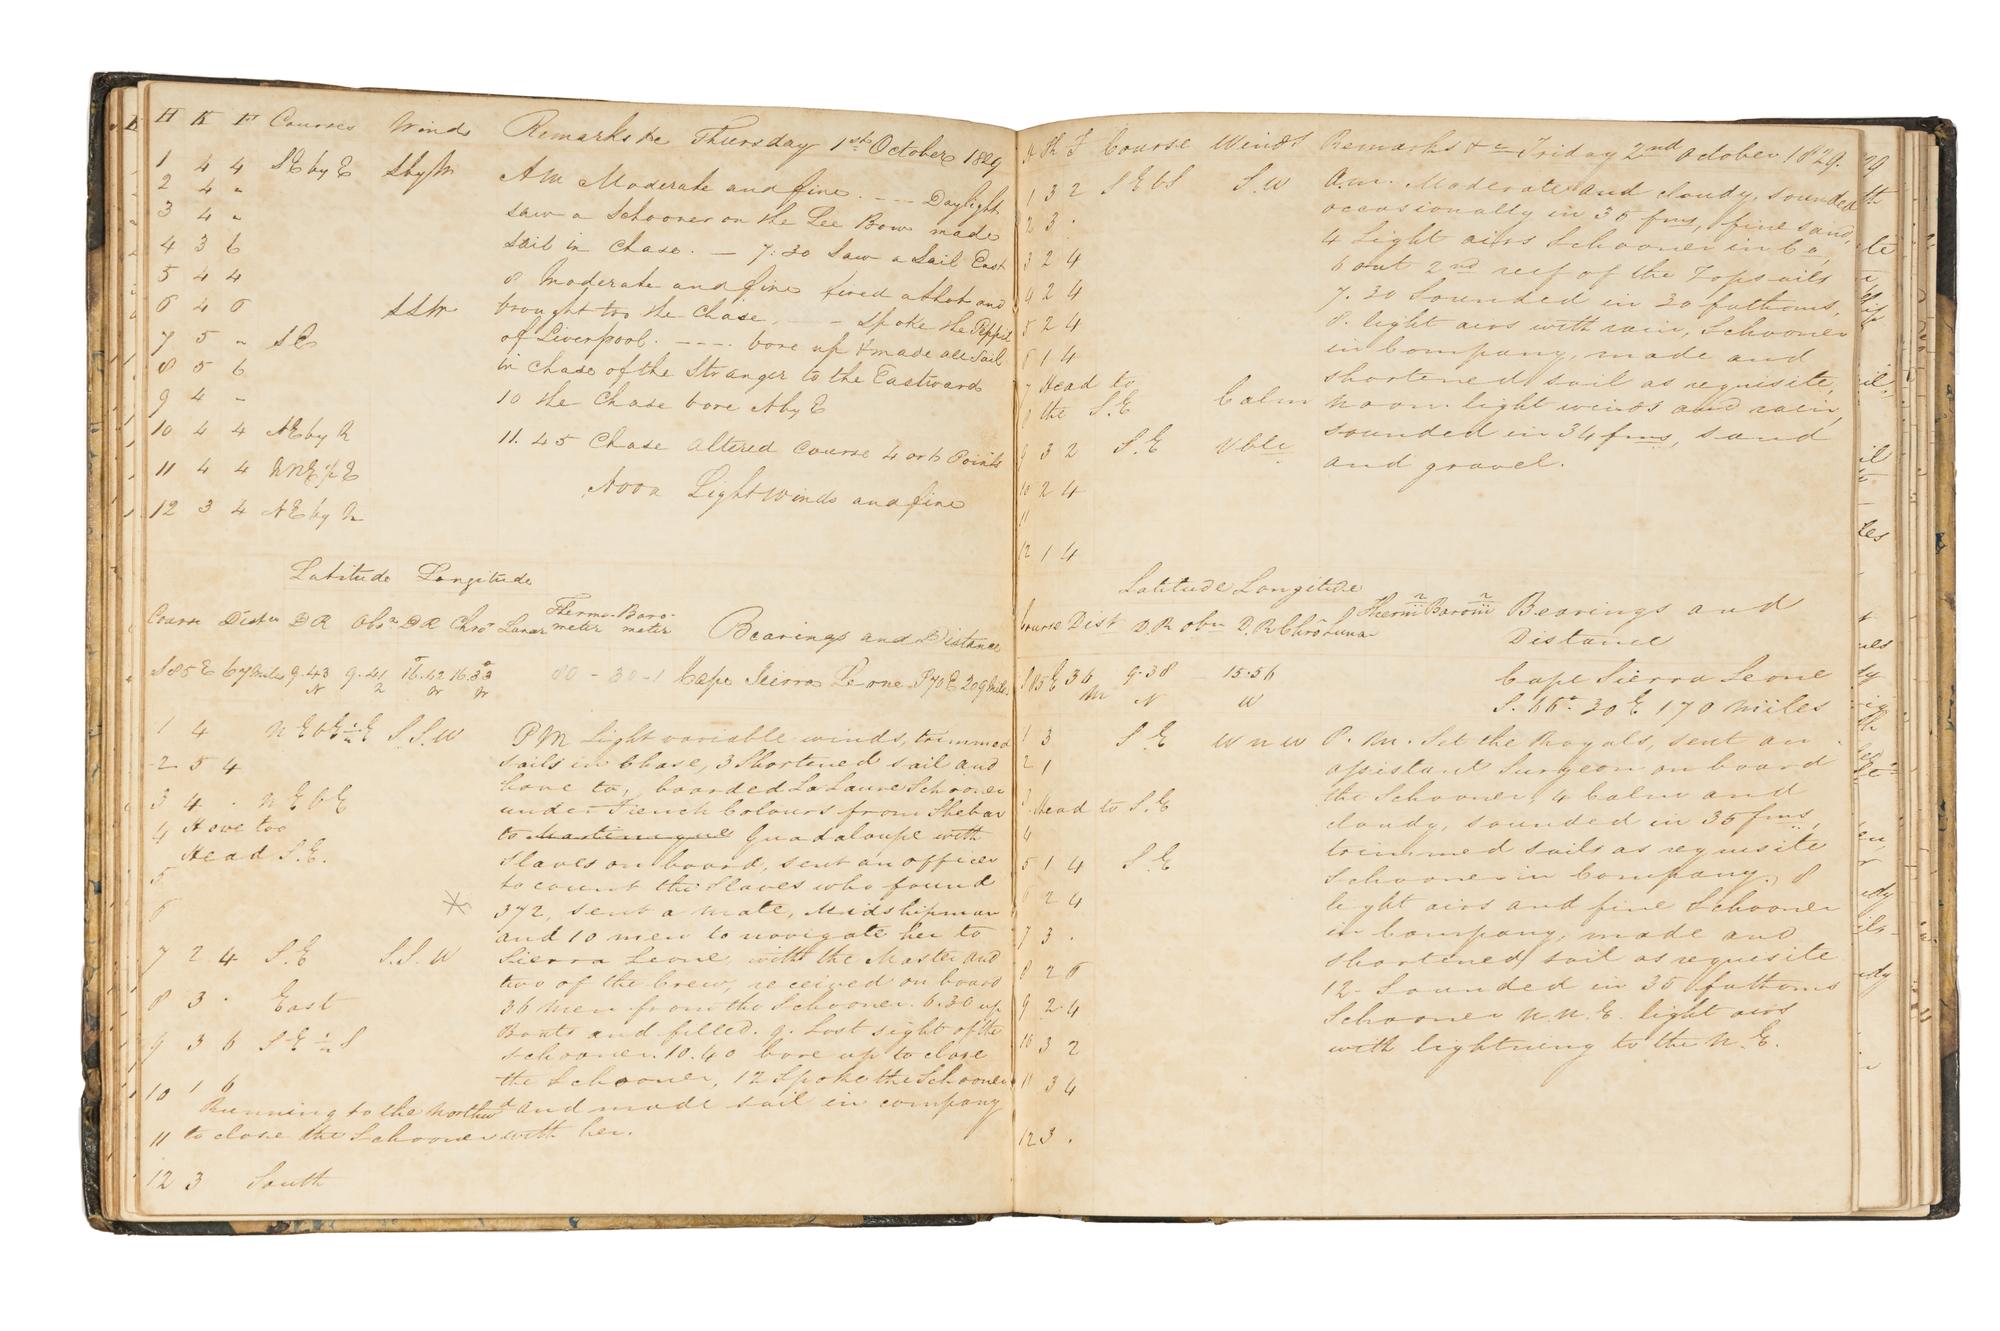 H K F Courses Winds Remarks &c Thursday 1st October 1829
1 4 4 SE by E SbyW AM Moderate and fine. --- Daylight
2 4 "
saw a Schooner on the Lee Bow made
3 4 "
sail in Chase. — 7:30 Saw a Sail East
4 3 6
8 Moderate and fine fired a shot and
5 4 4
brought too the Chase, — spoke the
6 4 6 SSW
of Liverpool. ---- bore up & made all Sail
7 5 " SE
in Chase of the Stranger to the Eastward
8 5 6
10 the Chase bore NbyE
9 4 -
11.45 Chase altered Course 4 or 6 Points
10 4 4 NE by N
Noon Light Winds and fine
11 4 4 NNE ½ E
12 3 4 NE by N
Latitude Longitude
Course Distce DR Obsn DR Chror Lunar Thermo-meter Baro-meter Bearings and Distance
S85E 67 Miles 9.43 N 9.41 16.42 W 16.33 W 80 - 30-1 Cape Sierra Leone S70E 209 Miles
1 4 NEbE½E S.S.W PM Light variable winds, trimmed
sails in Chase, 3 Shortened sail and
2 5 4
hove to, boarded La Laure Schooner
3 4 . NEbE
under French Colours from Shebar
4 Hove too
to Martinique Guadaloupe with
Head S.E.
Slaves on board, sent an officer
5
to count the Slaves who found
6
372, sent a mate, Midshipman
and 10 men to navigate her to
7 2 4 S.E S.S.W
Sierra Leone, with the Master and
two of the Crew, received on board
8 3 . East
36 men from the Schooner. 6.30 up
Boats and filled. 9. Lost sight of the
9 3 6 SE½S
Schooner. 10.40 bore up to close
the Schooner, 12 Spoke the Schooner
10 1 6
Running to the Northwd and made sail in company
11 to close the Schooner with her.
12 3 South
H K F Course Winds Remarks &c Friday 2nd October 1829.
1 3 2 SEbS S.W a.m. Moderate and cloudy, sounded
occasionally in 35 fms, fine sand,
2 3 .
4 Light airs Schooner in Co,
3 2 4
6 out 2nd reef of the Topsails
4 2 4
7.30 Sounded in 30 fathoms,
5 2 4
8. light airs with rain, Schooner
6 1 4
in Company, made and
7 Head to
shortened sail as requisite,
8 the S.E Calm
noon. light winds and rain,
9 3 2 S.E Vble
sounded in 34 fms, sand
and gravel.
10 2 4
11
12 1 4
Latitude Longitude
Course Dist D.R obsn D.R Chro Lunar Therm Barom Bearings and
Distance
S85E 36 m 9.38 N 15.56 W Cape Sierra Leone
S. 66° 30 E 170 miles
1 3 S E W n W P.M. Set the Royals, sent an
2 1
assistant Surgeon on board
3 Head to S.E
the Schooner, 4 Calm and
cloudy, sounded in 35 fms,
4
trimmed sails as requisite
5 1 4 S.E
Schooner in Company, 8
6 2 4
light airs and fine Schooner
7 3 .
in Company, made and
8 2 6
shortened sail as requisite
12. Sounded in 35 fathoms
9 2.4
Schooner N.N.E. light airs
10 3 2
with lightning to the N.E.
11 3 4
12 3 .